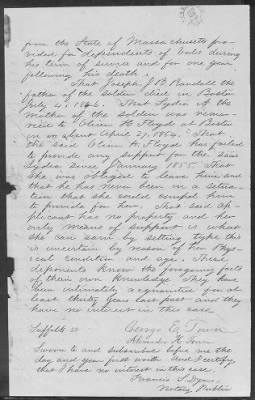 from the State of Massachusetts pro-
vided for dependents of Vols during
his term of service and for one year
following his death.
That Joseph J. B. Randall the
father of the soldier died in Boston
July 4, 1846. That Lydia A the
mother of the soldier was remar-
ried to Oliver H. Floyd at Boston
on or about April 27, 1854. That
the said Oliver H. Floyd has failed
to provide any support for the said
Lydia since January 1855. That
she was obliged to leave him and
that he has never been in a situa-
tion that she could compel him
to provide for her. That said ap-
plicant has no property and her
only means of support is what
she can earn by setting type this
is uncertain by reason of her Phy-
sical condition and age. These
deponents know the foregoing facts
of their own knowledge. They have
been intimately acquainted for at
least thirty years last past and they
have no interest in this case
George E. Town
Suffolk ss
Sworn to and subscribed before me the
day and year first written. And I certify
that I have no interest in this case.
Francis S. Dyer
Notary Public